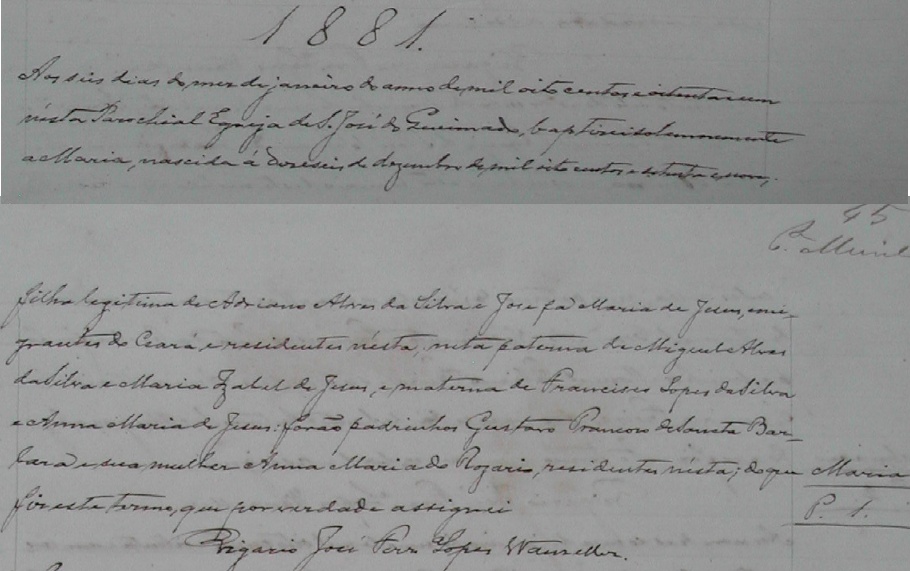 1881.
Aos seis dias do mez de janeiro do anno de mil oito centos e oitenta e um
nésta Parochial Egreja de S. José do Queimado, baptisei solemnemente
a Maria, nascida á dezeseis de dezembro de mil oito centos e setenta e nove,
45
filha legitima de Adriano Alves da Silva e Josefa Maria de Jesus, emi-
grantes do Ceará, e residentes nésta, neta paterna de Miguel Alves
da Silva e Maria Izabel de Jesus, e materna de Francisco Lopes da Silva
e Anna Maria de Jesus: forão padrinhos Gustavo Francisco de Santa Bar-
bara e sua mulher Anna Maria do Rozario, residentes nésta; do que
Maria
P. 1.
fiz este termo, que por verdade assignei
Vigario José Lopes